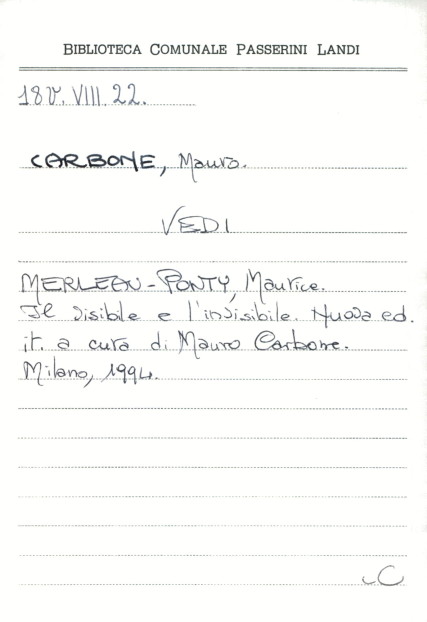 BIBLIOTECA COMUNALE PASSERINI LANDI
18V. VIII. 22.
CARBONE, Mauro.
VEDI
MERLEAU-PONTY, Maurice.
Il visibile e l'invisibile. Nuova ed.
it. a cura di Mauro Carbone.
Milano, 1994.